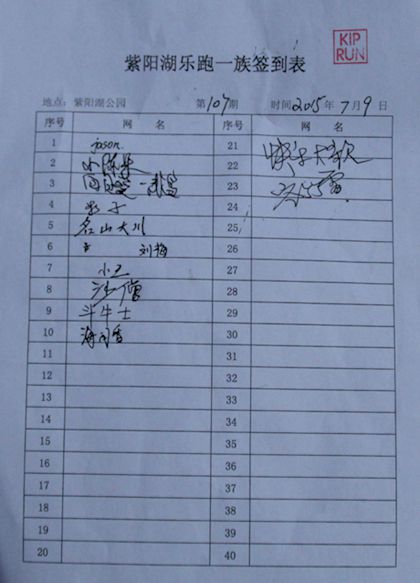 KIP
RUN
紫阳湖乐跑一族签到表
地点：紫阳湖公园 第107期 时间2015年7月9日
序号 网 名 序号 网 名
1 jason 21
2 22
3 23
4 24
5 名山大川 25
6 刘梅 26
7 小卫 27
8 沙僧 28
9 斗牛士 29
10 30
11 31
12 32
13 33
14 34
15 35
16 36
17 37
18 38
19 39
20 40